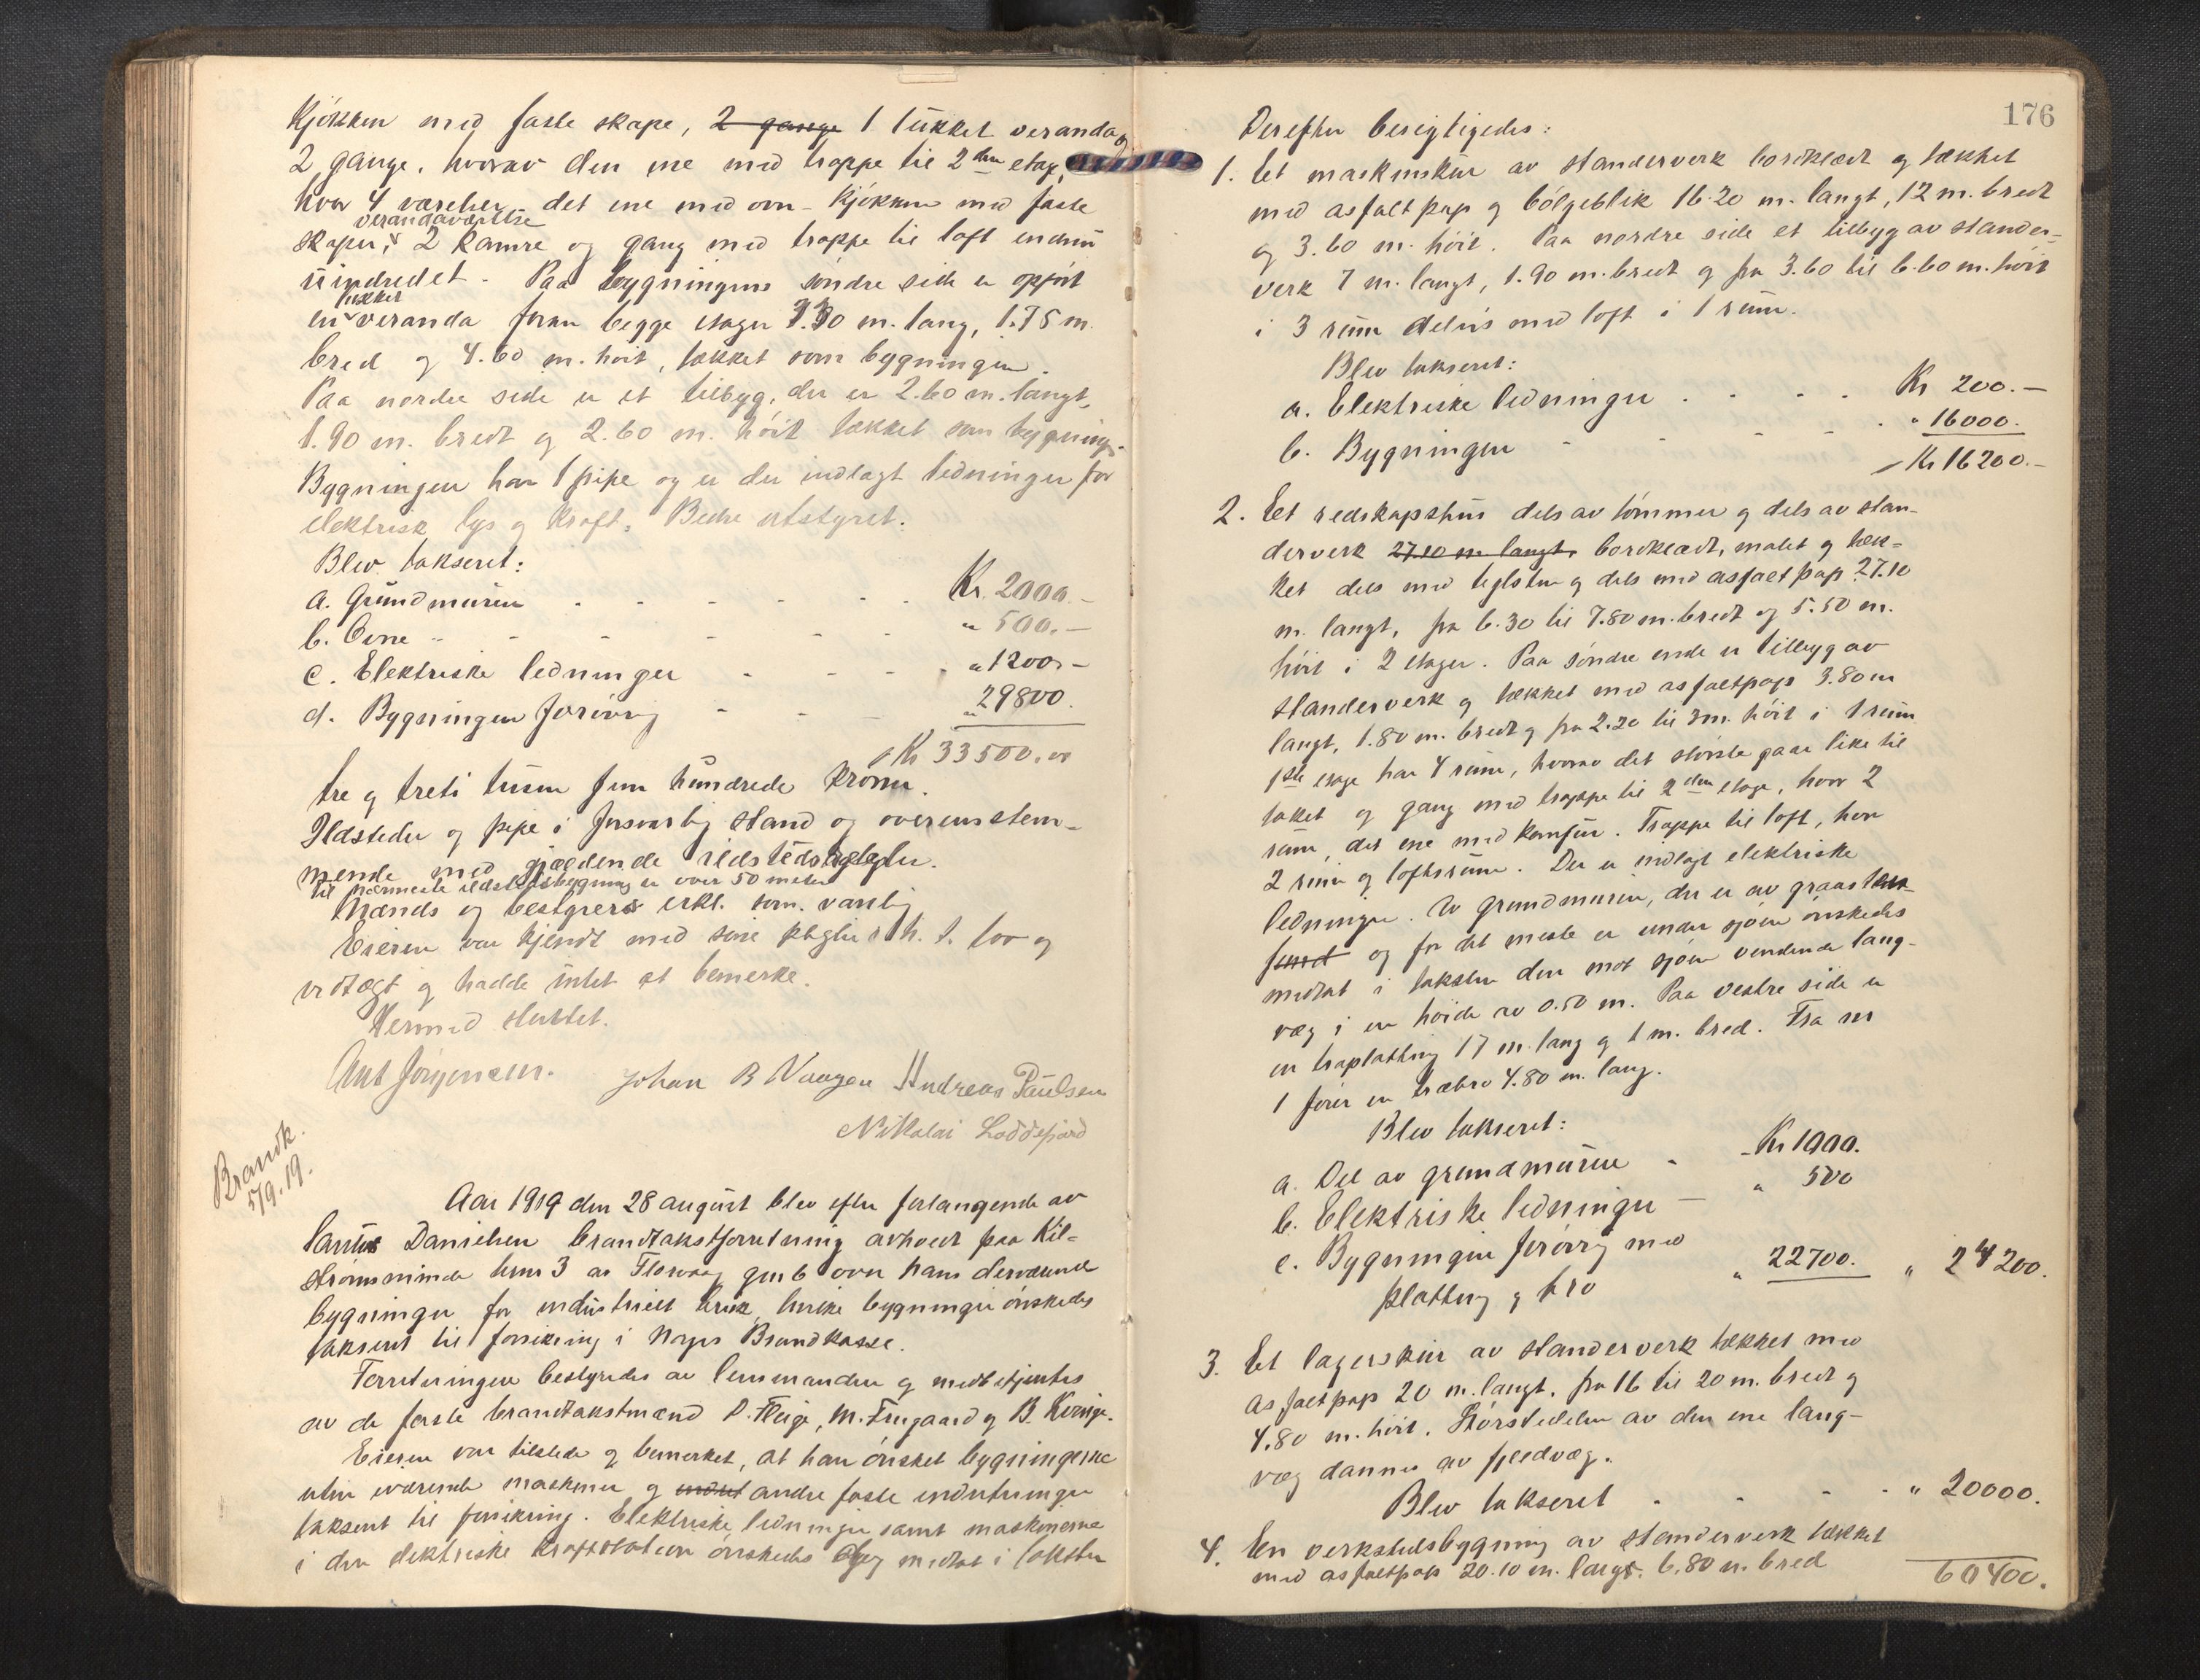 Kjøkken med faste skape, 2 gange 1 lukket veranda og
2 gange, hvorav den ene med trappe til 2den etage,
hvor 4 værelser, det ene med ovn - kjøkken med faste
verandaværelse
skaper, 2 kamre og gang med trappe til loft endnu
uindredet. Paa bygningens søndre side er opført
lukket
en veranda foran begge etager 3.30 m. lang, 1.75 m.
bred og 4.60 m. høit, tækket som bygningen.
Paa nordre side er et tilbyg, der er 2.60 m. langt,
1.90 m. bredt og 2.60 m. høit tækket som bygningen.
Bygningen har 1 pipe og er der indlagt ledninger for
elektrisk lys og kraft. Bedre utstyret.
Blev takseret:
a. Grundmuren Kr. 2000.-
b. Ovne " 500.-
c. Elektriske ledninger " 1200.-
d. Bygningen forøvrig " 29800.
Kr 33500.00
tre og treti tusen fem hundrede kroner.
Ildsteder og pipe i forsvarlig stand og overensstem-
mende med gjældende ildstedsregler.
Til nærmeste ildstedsbygning er over 50 meter
Mænds og bestyrers erkl. som vanlig
Eieren var kjendt med sine pligter i h. t. lov og
vedtægt og hadde intet at bemerke.
Hermed sluttet.
Ant Jørgensen. Johan B Vaagen Andreas Paulsen
Nikolai Loddefjord
Brandk.
5/9.19.
Aar 1919 den 28 august blev efter forlangende av
Danielsen brandtakstforretning avholdt paa Kil-
strømsminde bnr 3 av Florvaag gnr 6 over hans derværende
bygninger for industrielt bruk, hvilke bygninger ønskedes
takseret til forsikring i Norges Brandkasse.
Forretningen bestyredes av lensmanden og medbetjentes
av de faste brandtakstmænd P. Fleige, M. Frugaard og B. Kvinge.
Eieren var tilstede og bemerket, at han ønsket bygningerne
uten iværende maskiner og andre faste indretninger
takseret til forsikring. Elektriske ledninger samt maskinerne
i den elektriske kraftstation ønskedes medtat i taksten
176
Derefter besigtigedes:
1. Et maskinskur av standerverk bordklædt og tækket
med asfaltpap og bølgeblik 16.20 m. langt, 12 m. bredt
og 3.60 m. høit. Paa nordre side et tilbyg av stander-
verk 7 m. langt, 1.90 m. bredt og fra 3.60 til 6.60 m. høit
i 3 rum delvis med loft i 1 rum.
Blev takseret:
a. Elektriske ledninger Kr 200.-
b. Bygningen " 16000.
Kr 16200.-
2. Et redskapshus dels av tømmer og dels av stan-
derverk 27.10 m. langt, bordklædt, malet og tæk-
ket dels med teglsten og dels med asfaltpap 27.10
m. langt, fra 6.30 til 7.80 m. bredt og 5.50 m.
høit i 2 etager. Paa søndre ende er tilbyg av
standerverk og tækket med asfaltpap 3.80 m
langt, 1.80 m. bredt og fra 2.20 til 3 m. høit i 1 rum
1ste etage har 4 rum, hvorav det største gaar like til
taket og gang med trappe til 2den etage, hvor 2
rum, det ene med komfur. Trappe til loft, hvor
2 rum og loftsrum. Der er indlagt elektriske
ledninger. Av grundmuren, der er av graasten
og for det meste er under sjøen ønskedes
medtat i taksten den mot sjøen vendende lang-
væg i en høide av 0.50 m. Paa vestre side er
en træplatting 17 m. lang og 1 m. bred. Fra nr
1 fører en træbro 4.80 m. lang.
Blev takseret:
a. Del av grundmuren Kr 1000.
b. Elektriske ledninger " 500
c. Bygningen forøvrig med
platting og bro " 22700. " 24200.
3. Et lagerskur av standerverk tækket med
asfaltpap 20 m. langt, fra 16 til 20 m. bredt og
4.80 m. høit. Størstedelen av den ene lang-
væg dannes av fjeldvæg.
Blev takseret " 20000.
4. En verkstedsbygning av standerverk tækket
med asfaltpap 20.10 m. langt. 6.80 m. bred
60400.